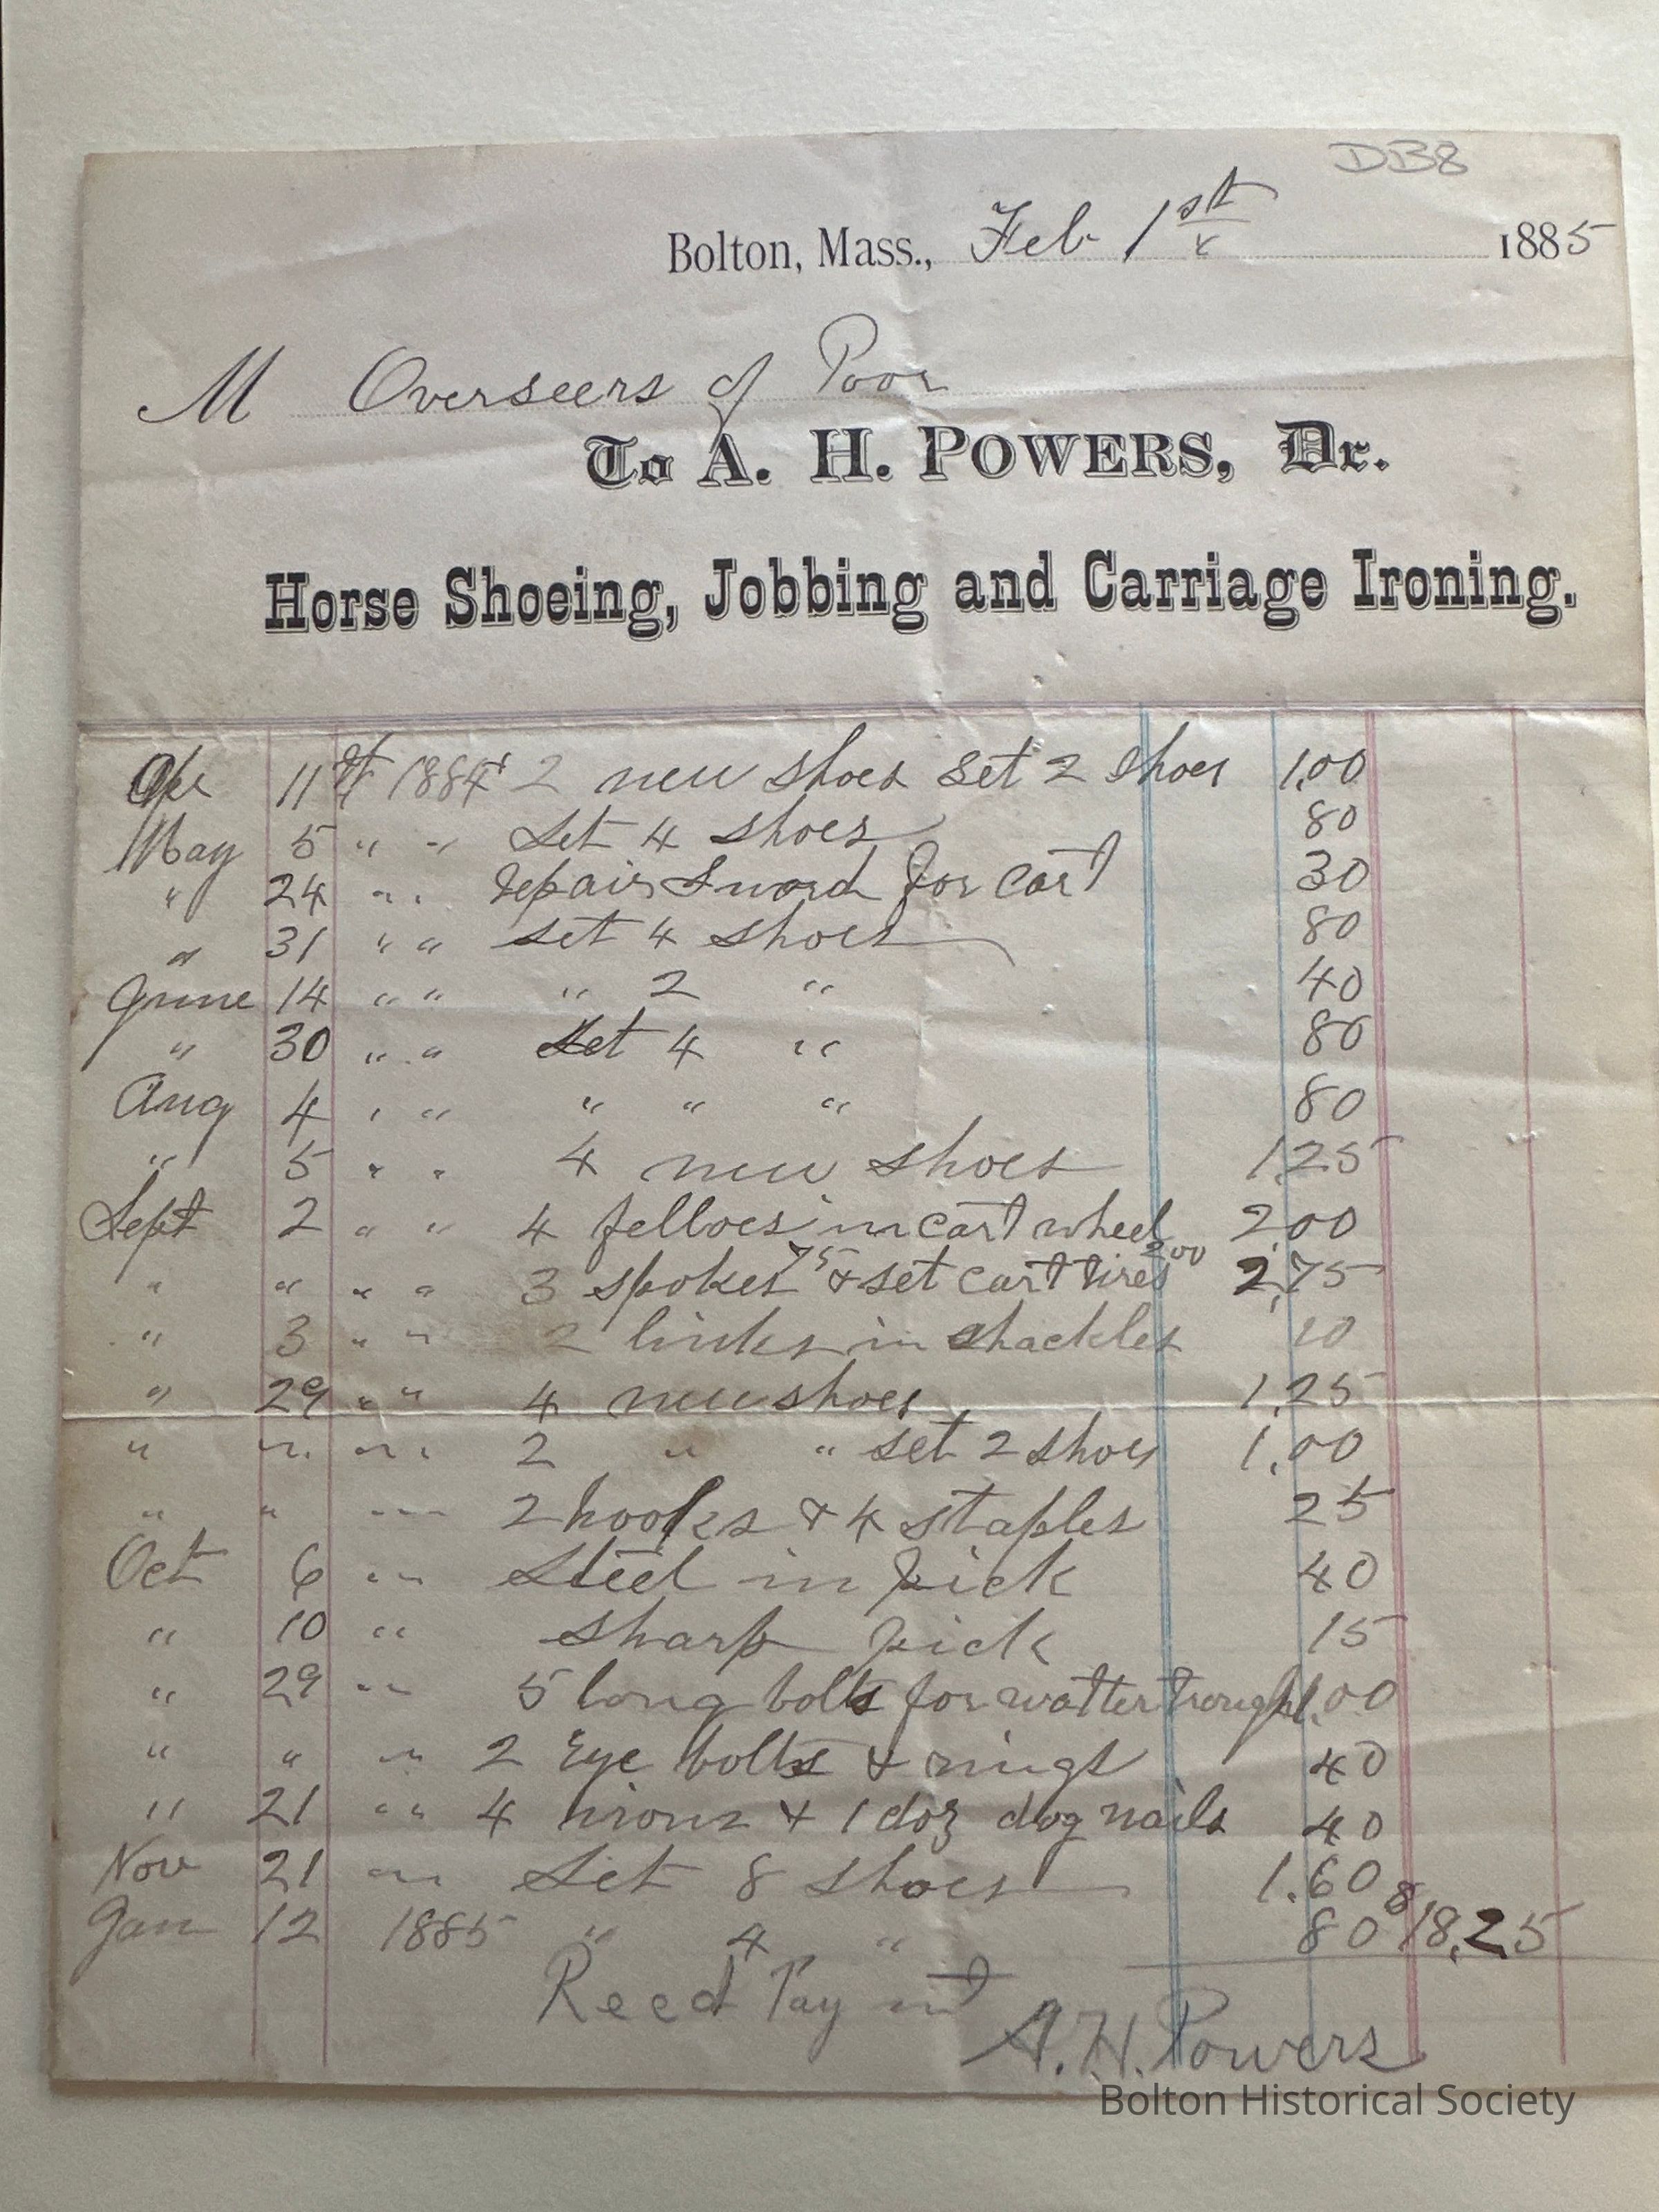 DB8
Bolton, Mass., Feb 1st 1885
M Overseers of Poor
To A. H. POWERS, Dr.
Horse Shoeing, Jobbing and Carriage Ironing.
Apr 11th 1884 2 new shoes set 2 shoes 1,00
May 5 " " Set 4 shoes 80
" 24 " " repair Sword for cart 30
" 31 " " set 4 shoes 80
June 14 " " " 2 " 40
" 30 " " Set 4 " 80
Aug 4 " " " " " 80
" 5 " " 4 new shoes 1,25
Sept 2 " " 4 felloes in cart wheel 2,00
" " " " 3 spokes 75 & set cart tires 2.00 2,75
" 3 " " 2 links in shackles 10
" 29 " " 4 new shoes 1,25
" " " " 2 " " set 2 shoes 1,00
" " " " 2 hooks & 4 staples 25
Oct 6 " " Steel in pick 40
" 10 " " sharp pick 15
" 29 " " 5 long bolts for watter trough 1.00
" " " " 2 Eye bolts & rings 40
" 21 " " 4 irons & 1 doz dog nails 40
Nov 21 " " Set 8 shoes 1.60
Jan 12 1885 " 4 " 80 $18,25
Recd Payment
A. H. Powers
Bolton Historical Society